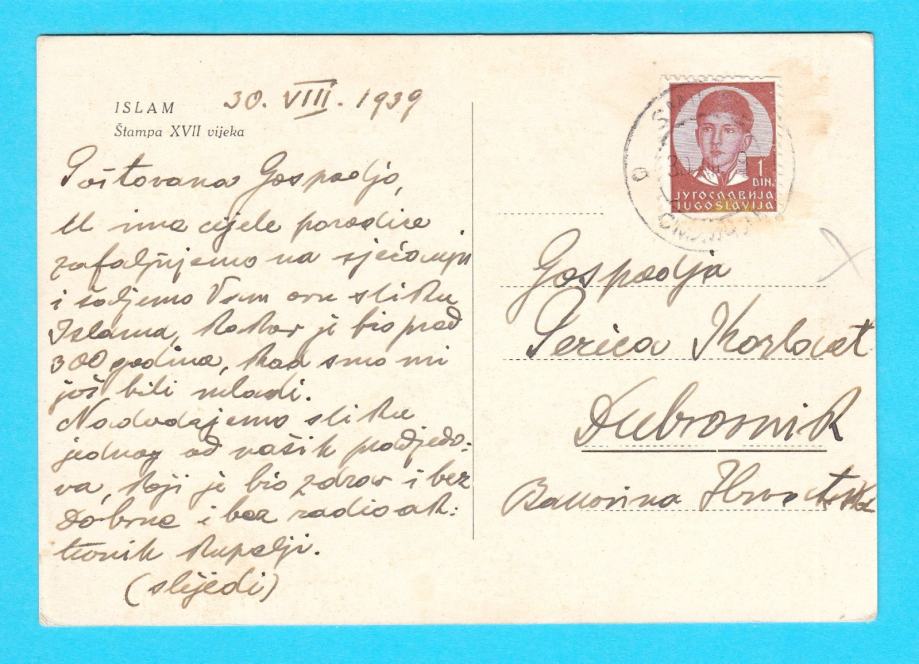 ISLAM
Štampa XVII vijeka
30. VIII. 1939
Poštovana Gospodjo,
U ime cijele porodice
zafaljujemo na sjećanju
i šaljemo Vam ovu sliku
Islama, kakav je bio pred
300 godina, kad smo mi
još bili mladi.
Nadodajemo sliku
jednog od naših pradjedo-
va, koji je bio zdrav i bez
Dobrne i bez radioak-
tivnih kupelji.
(slijedi)
1
DIN.
ЈУГОСЛАВИЈА
JUGOSLAVIJA
Gospodja
Perica Kozlovat
Dubrovnik
Banovina Hrvatska